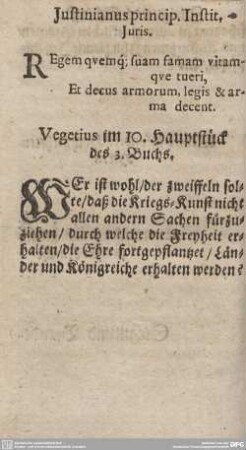 Justinianus princip. Instit.
Juris.
REgem qvemq; suam famam vitam-
qve tueri,
Et decus armorum, legis & ar-
ma decent.
Vegetius im 10. Hauptstück
des 3. Buchs.
WEr ist wohl/der zweiffeln sol-
te/daß die Kriegs-Kunst nicht
allen andern Sachen fürzu-
ziehen/durch welche die Freyheit er-
halten/die Ehre fortgepflantzet/Län-
der und Königreiche erhalten werden?